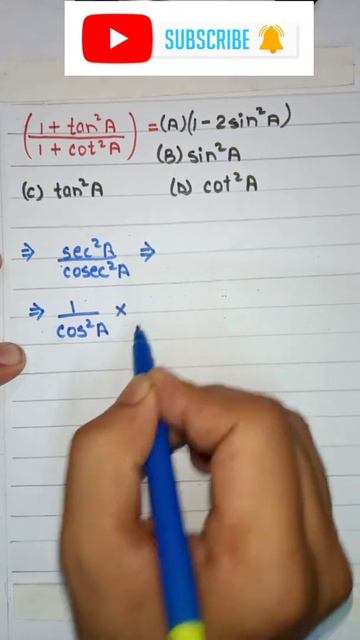 SUBSCRIBE
(1 + tan²A / 1 + cot²A) = (A) (1 - 2sin²A)
(B) sin²A
(C) tan²A (D) cot²A
⇒ sec²A / cosec²A ⇒
⇒ 1 / cos²A ×